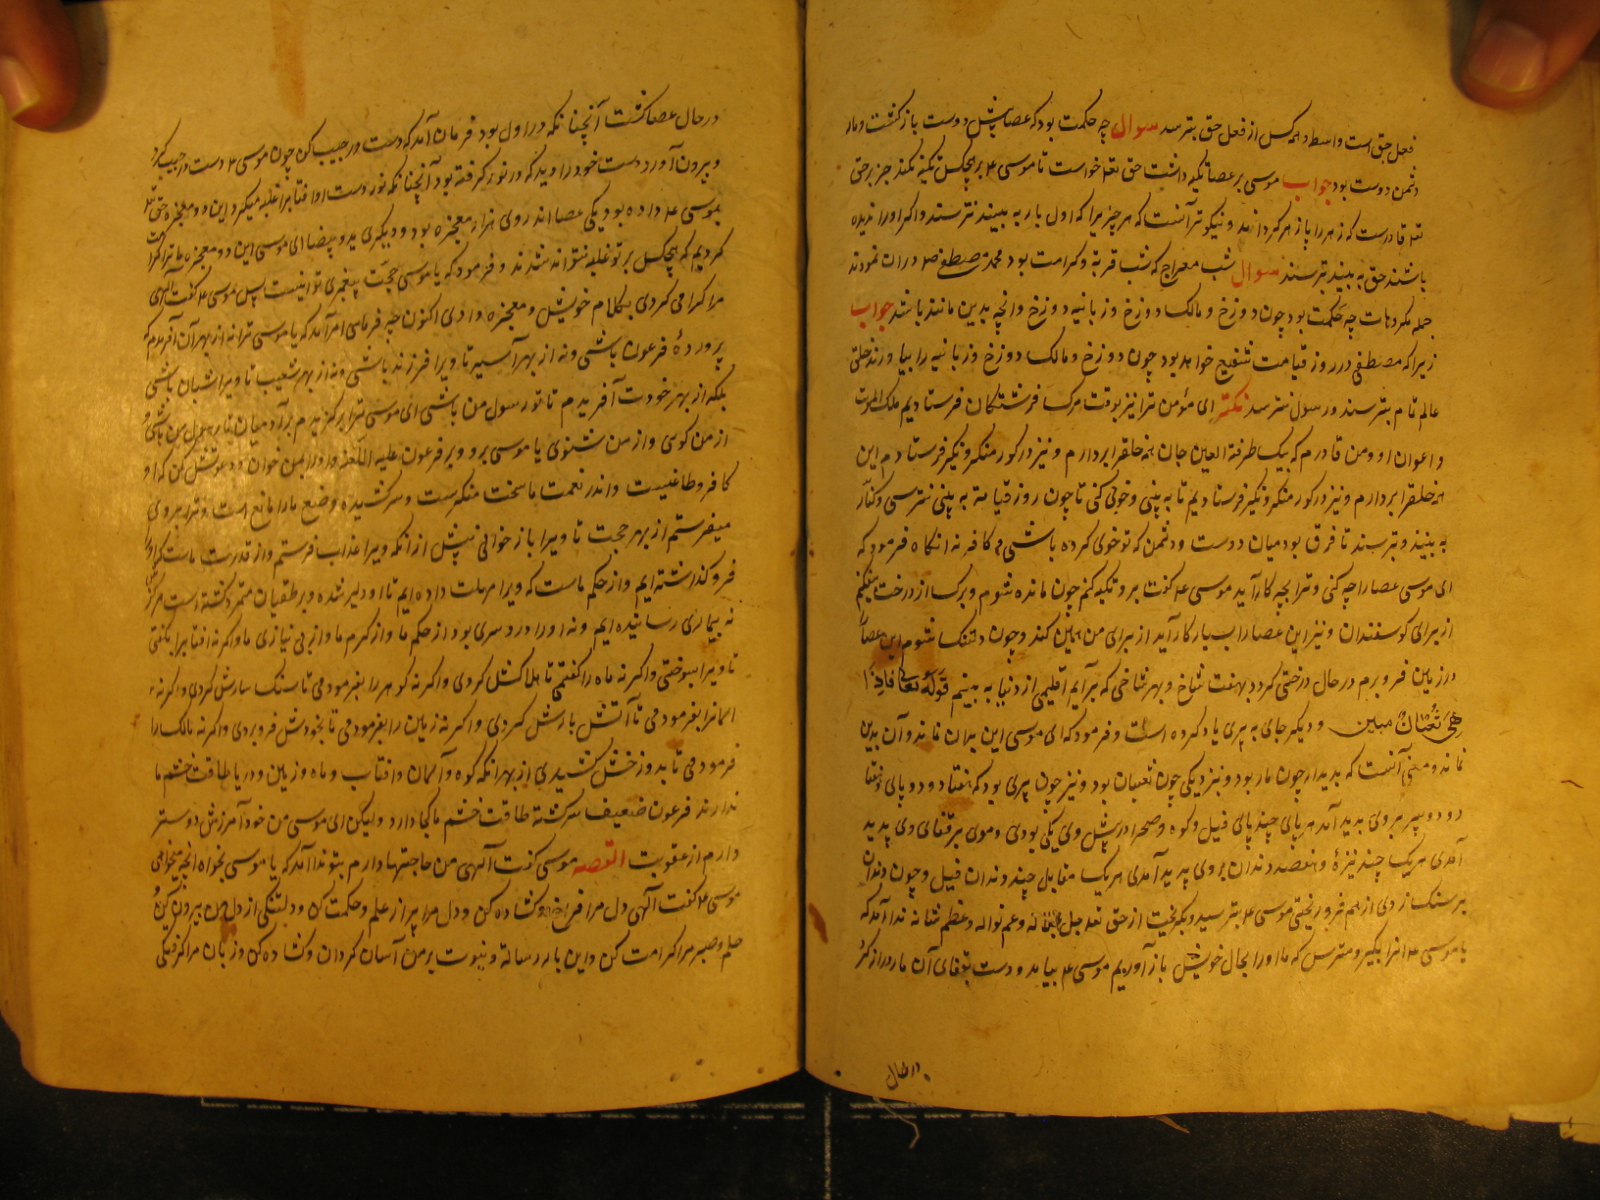 فعل حق است واسطه همه کس از فعل حق بترسد سوال چه حکمت بود که عصا پیش دوست بازگشت و مار
دشمن دوست بود جواب موسی بر عصا تکیه داشت حق تعه خواست تا موسی ع بر هیچکس تکیه نکند جز بر حق
تعه قادرست که زهر را باز هر گرداند و نیکوتر آنست که هر چیزیرا که اول بار به بینند نترسند و اگر او را ندیده
باشند حق به بینند بترسند سوال شب معراج که شب قربة و کرامت بود محمد مصطفی صم در ان نمودند
جمله مکروهات چه حکمت بود چون دوزخ و مالک دوزخ و زبانیه دوزخ و انچه بدین مانند باشد جواب
زیرا که مصطفی در روز قیامت شفیع خواهد بود چون دوزخ و مالک دوزخ و زبانیه را بیارند خلق
عالم تمام بترسند و رسول نترسد نکته ای مؤمن ترا نیز بوقت مرگ فرشتگان فرستادیم ملک الموت
و اعوان او و من قادرم که بیک طرفة العین جان همه خلق را بردارم و نیز در گور منکر و نکیر فرستادم این
همه خلق را بردارم و نیز در گور منکر و نکیر فرستادیم تا به بینی و خوی کنی تا چون روز قیامة به بینی نترسی و کفار
به بینند و بترسند تا فرق بود میان دوست و دشمن که تو خوی کرده باشی و کافر نه انگاه فرمود که
ای موسی عصا را چه کنی و ترا بچه کار آید موسی ع گفت برو تکیه کنم چون مانده شوم و برگ از درخت بیفکنم
از برای گوسفندان و نیز این عصا را بسیار کار آید از برای من همین کند و چون دلتنگ شوم این عصا
در زمین فرو برم در حال درختی گردد بهفت شاخ و بهر شاخی که برآیم اقلیمی از دنیا به بینم قوله تعالی فاذا
هی ثعبان مبین و دیگر جای به پری یاد کرده است و فرمود که ای موسی این بدان نماند و آن بدین
نماند و معنی آنست که بدیدار چون مار بود و نیز دیگی چون ثعبان بود و نیز چون پری بود که هفتاد و دو پای و هفتا
د و دو سر بروی پدید آمد هر پای چند پای فیل و کوه و صحرا در پیش وی یکی بودی و موی بر قفای وی پدید
آمدی هر یک چند نیزه و هفتصد دندان بروی پدید آمدی هر یک مقابل چند دندان فیل و چون دندان
بر سنک زدی از هم فرو ریختی موسی ع بترسید و بگریخت از حق تعه جل جلاله و عم نواله و عظم شانه ندا آمد که
یا موسی ع انرا بگیر و مترس که ما او را بحال خویش باز آوریم موسی ع بیامد و دست بقفای آن مار دراز کرد
در حال
در حال عصا گشت آنچنانکه در اول بود فرمان آمد که دست در جیب کن چون موسی ع دست در جیب کرد
و بیرون آورد دست خود را دید که در نور گرفته بود آنچنانکه نور دست او افتابرا غلبه میکرد این دو معجزه حق تعه
بموسی ع داده بود یکی عصا اندر وی هزار معجزه بود و دیگری ید و بیضا ای موسی این دو معجزه ما ترا کرامت
کردیم که هیچکس بر تو غلبه نتواند شدند و فرمود که یا موسی حجت پیغمبری تو اینست پس موسی ع گفت آلهی
مرا گرامی کردی بکلام خویش و معجزه دادی اکنون چه فرمایی امر آمد که یا موسی ترا نه از بهر آن آفریدم که
پرورده فرعون باشی و نه از بهر آسیه تا ویرا فرزند باشی و نه از بهر شعیب تا ویرا شبان باشی
بلکه از بهر خودت آفریدم تا تو رسول من باشی ای موسی ترا برگزیدم بر آدمیان تا رسول من باشی و
از من گویی و از من شنوی یا موسی برو و بر فرعون علیه اللعنه و او را بمن خوان و دعوتش کن که او
کافر و طاغیست و اندر نعمت ما سخت منکرست و سرکشیده و صنع ما را مانع است و ترا بروی
میفرستم از بهر حجت تا ویرا باز خوانی پیش از انکه ویرا عذاب فرستم و از قدرت ماست که او را
فرو گذاشته ایم و از حکم ماست که ویرا مهلت داده ایم تا او دلیر شده و بر طغیان متمرد گشته است هرگز
نه بیماری رسانیده ایم و نه او را درد سری بود از حکم ما و از کرم ما و از بی نیازی ما و اگر نه افتابرا بگفتی
تا ویرا بسوختی و اگر نه ماه را گفتمی تا هلاکش کردی و اگر نه کوهرا بفرمودمی تا سنک سارش کردی و اگر نه
اسمانرا بفرمودمی تا آتش بارش کردی و اگر نه زمین را بفرمودمی تا بخودش فرو بردی و اگر نه مالک را
فرمودمی تا بدوزخش کشیدی از بهر انکه کوه و آسمان و افتاب و ماه و زمین و دریا طاقت خشم ما
ندارند فرعون ضعیف سرگشته طاقت خشم ما کجا دارد و لیکن ای موسی من خود آمرزش دوستر
دارم از عقوبت القصه موسی گفت آلهی من حاجتها دارم بتو ندا آمد که یا موسی بخواه انچه میخواهی
موسی ع گفت آلهی دل مرا فراخ و گشاده کن و دل مرا پر از علم و حکمت کن و دلتنگی از دل من بیرون کن و
حلم و صبر مرا کرامت کن و این بار رسالة و نبوت بر من آسان گردان و گشاده کن و زبان مرا